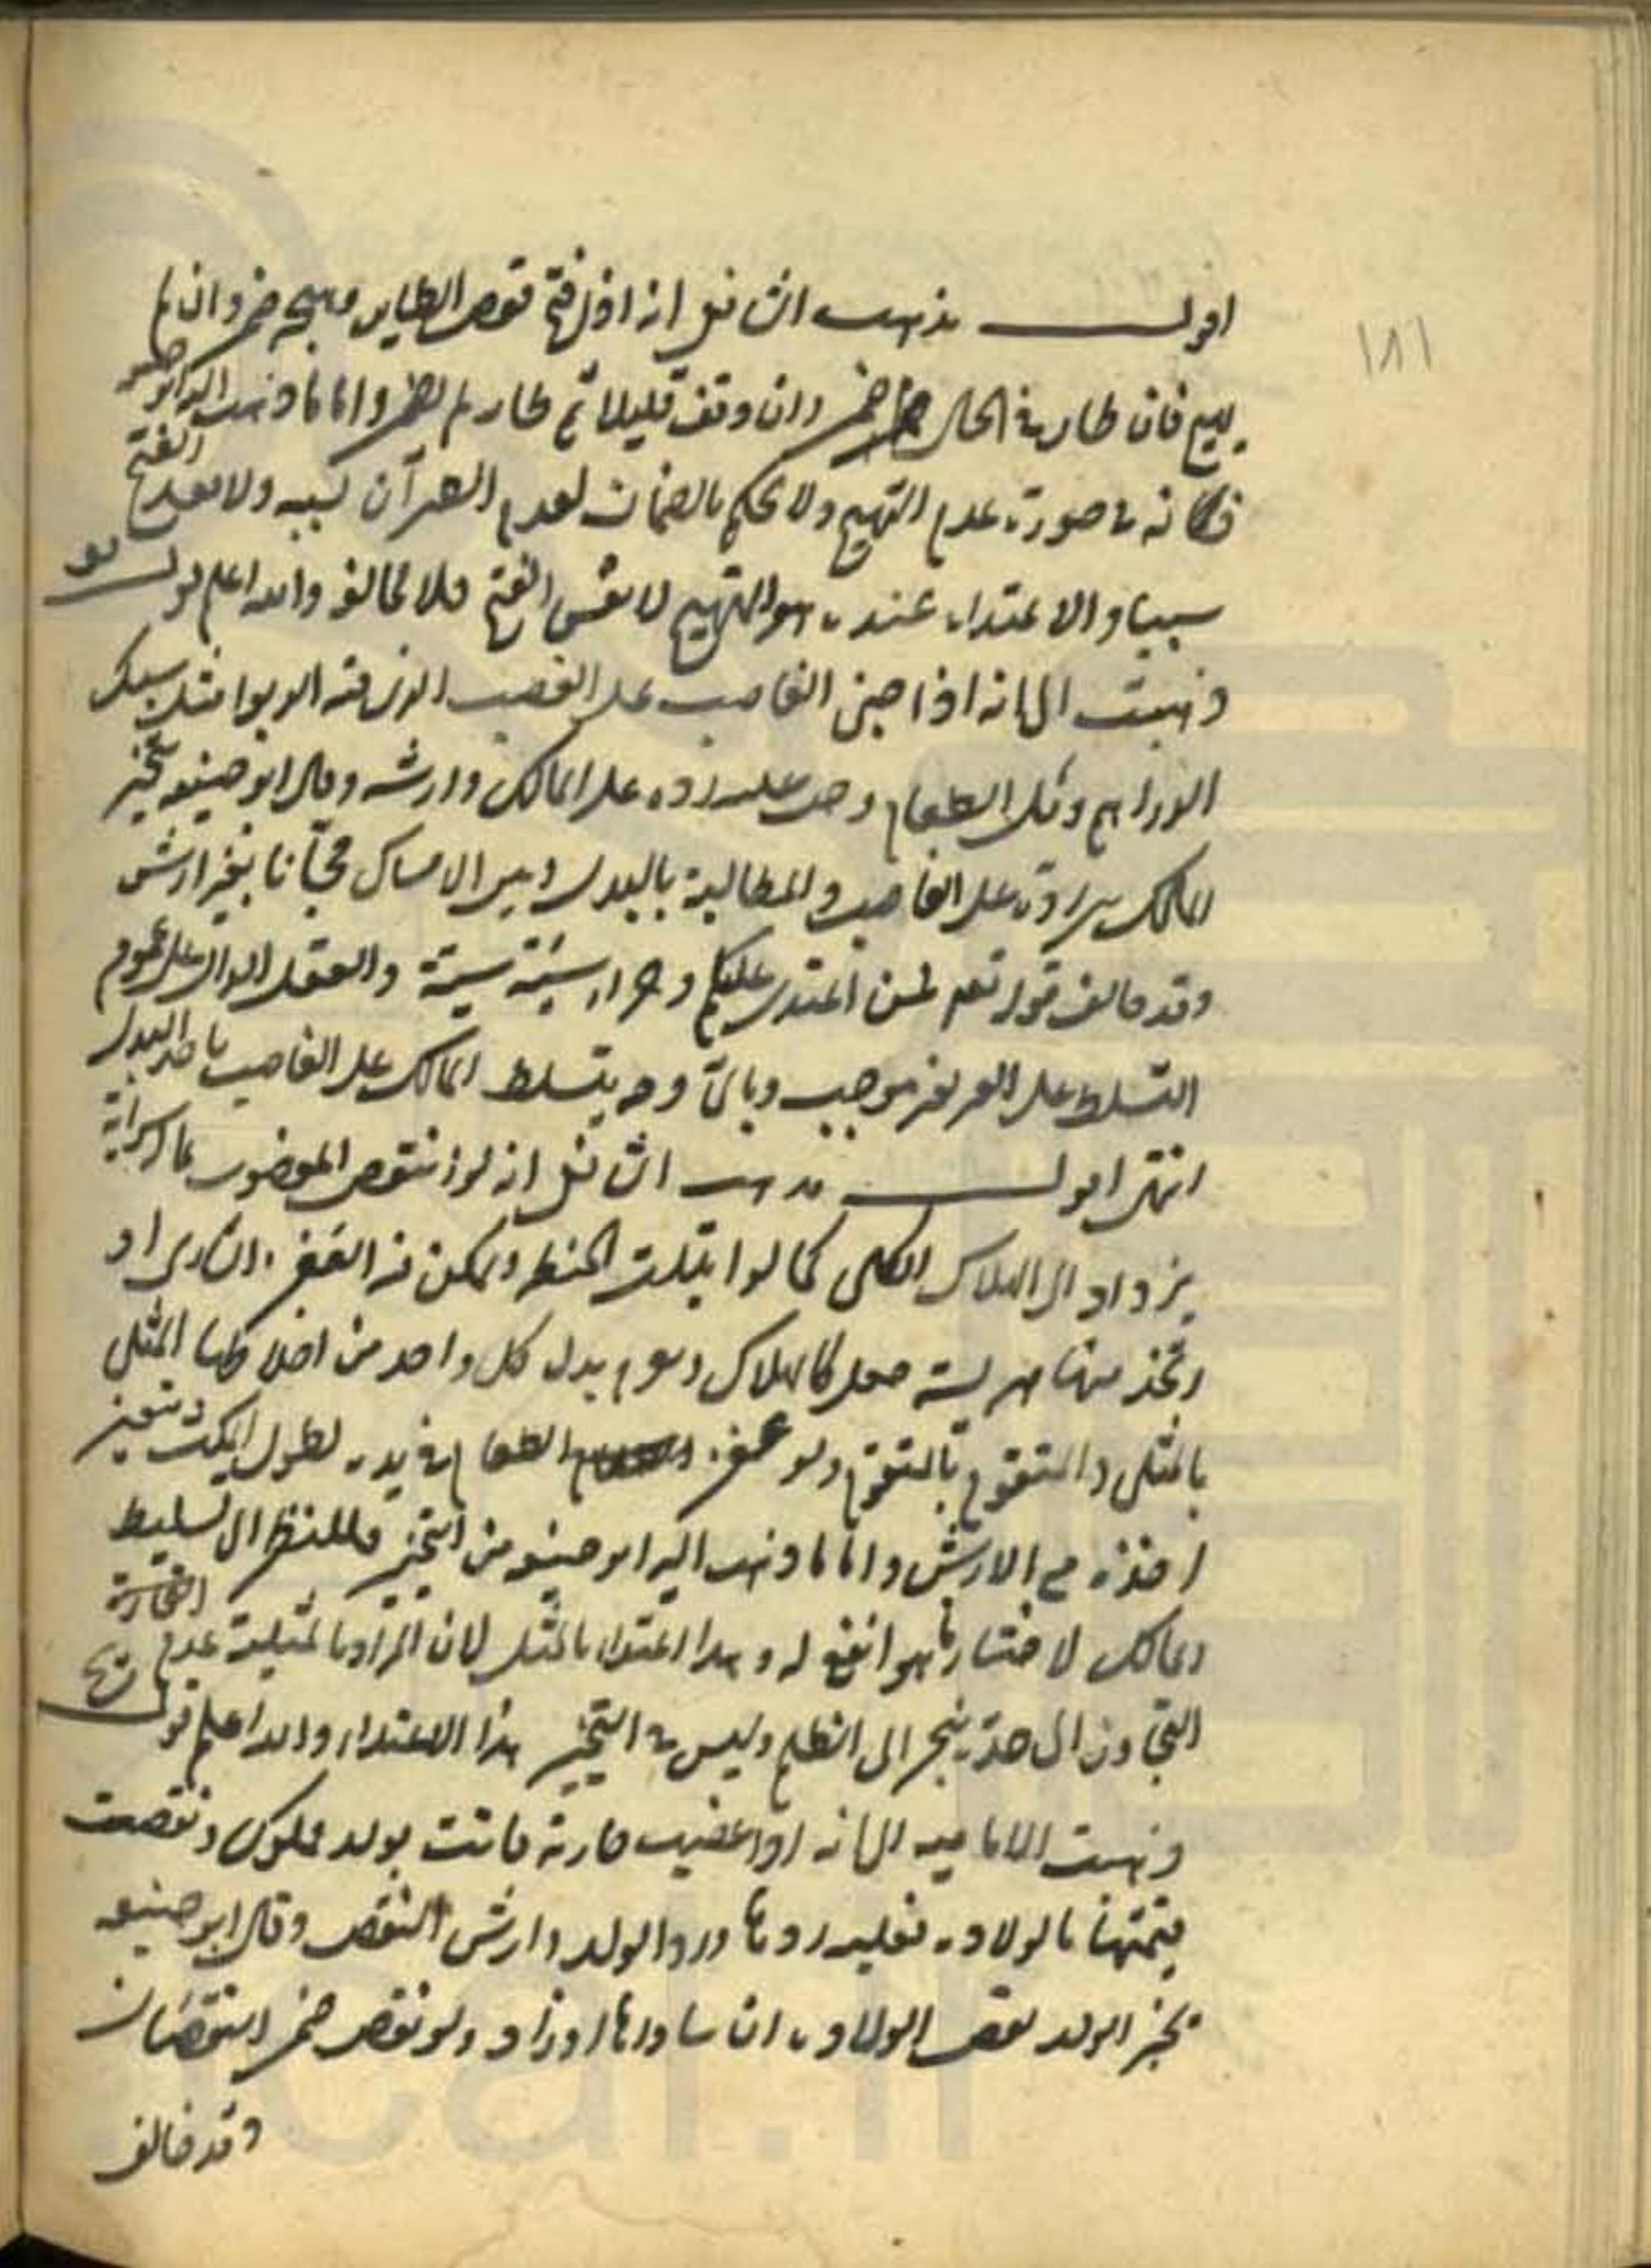 ١٨١
اقول مذهب الشافعي انه اذا فتح قفص الطاير وهيجه ضمن وان لم
يهيج فان طار في الحال ضمن وان وقف قليلا ثم طار لم يضمن واما ما ذهب اليه ابو حنيفه
فكانه في صورة عدم التهييج ولا يحكم بالضمان لعدم كسبه ولا يعد الفتح
سببا والاعتداء عنده هو التهييج لا نفس الفتح فلا مخالفه والله اعلم قوله
ذهبت الى انه اذا جنى الغاصب على الغصب الذي فيه الربوا مثل سبك
الدراهم وبل الطعام وجب عليه رده على المالك وارشه وقال ابو حنيفه يتخير
المالك بين رده على الغاصب والمطالبة بالبدل وبين الامساك مجانا بغير ارش
وقد خالف قوله تعم فمن اعتدى عليكم وجزاء سيئة سيئة والعقل الدال على عموم
التسلط على الغير بغير موجب وباى وجه يتسلط المالك على الغاصب باخذ البدل
انتهى اقول مذهب الشافعي انه لو انتقص المغصوب بما له سراية
يزداد الى الهلاك الكلى كما لو ابتلت الحنطه وتمكن فيه العفن السارى او
اتخذ منها هريسة جعل كالهلاك وغرم بدل كل واحد من اخلاطها المثلى
بالمثلى والمتقوم بالمتقوم ولو عفن الطعام في يده لطول المكث تعين
اخذه مع الارش واما ما ذهب اليه ابو حنيفه من التخيير فللنظر الى تسليط
المالك لاختيار ما هو انفع له وهذا اعتداء بالمثل لان المراد بالمثلية عدم
التجاوز الى حد ينجر الى الظلم وليس في التخيير هذا الاعتداء والله اعلم قوله
ذهبت الاماميه الى انه اذا غصب جارية فاتت بولد مملوك ونقصت
قيمتها بالولادة فعليه ردها ورد الولد وارش النقص وقال ابو حنيفه
يجبر الولد نقص الولادة ان ساواها او زاد ولو نقص ضمن النقصان
وقد خالف